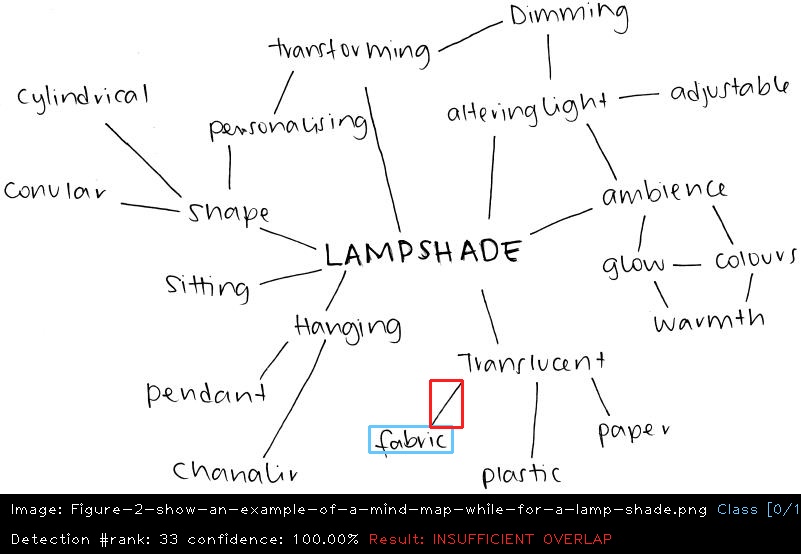 Dimming
transforming
cylindrical
adjustable
altering light
personalising
conular
shape
ambience
LAMPSHADE
glow
colours
sitting
Hanging
warmth
Translucent
pendant
fabric
paper
chanaliv
plastic
Image: Figure-2-show-an-example-of-a-mind-map-while-for-a-lamp-shade.png Class [0/1
Detection #rank: 33 confidence: 100.00% Result: INSUFFICIENT OVERLAP